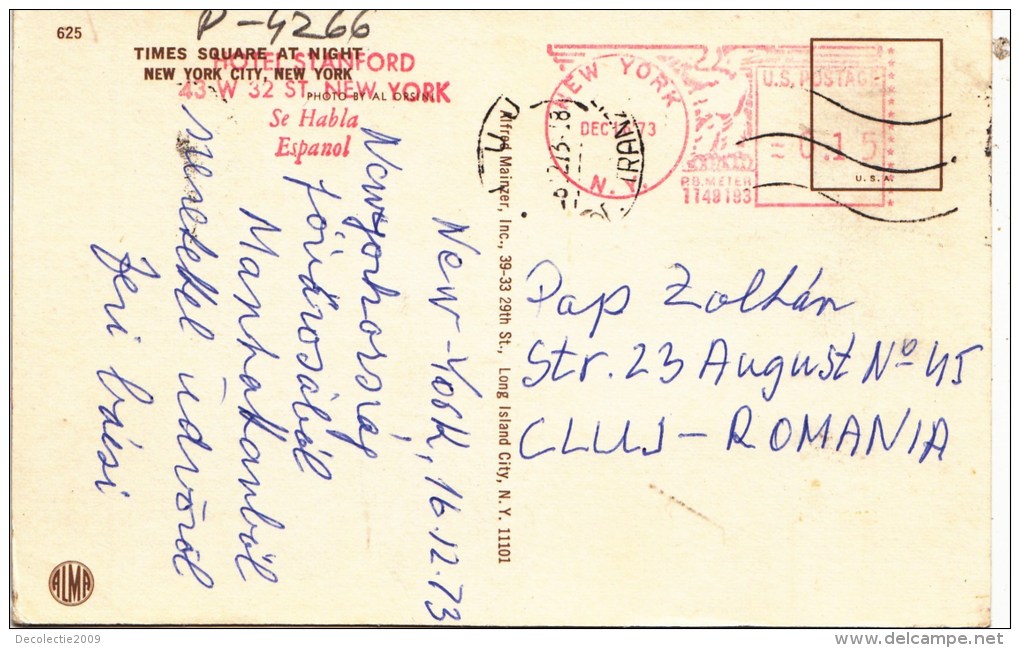 625
P-4266
TIMES SQUARE AT NIGHT
NEW YORK CITY, NEW YORK
PHOTO BY AL ORSINI
HOTEL STANFORD
43 W 32 ST. NEW YORK
Se Habla
Espanol
New-York, 16.12.73
Newyorkország
fővárosából
Manhattanból
üdvözöl
Jeni bácsi
Alfred Mainzer, Inc., 39-33 29th St., Long Island City, N. Y. 11101
NEW YORK
DEC 16 '73
N. Y.
U.S. POSTAGE
= 0.15
P.B. METER
1148183
U. S. A.
Pap Zoltán
Str. 23 August Nº 45
CLUJ - ROMANIA
ALMA
Decolectie2009
delcampe.net